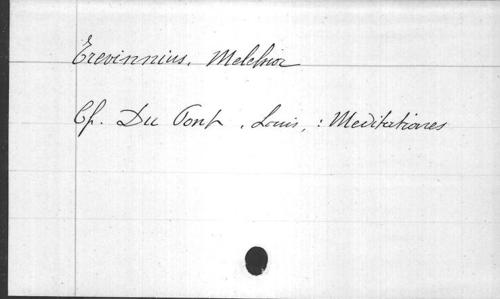 Trevinnius, Melchior
Cf. Du Pont, Louis, : Meditationes